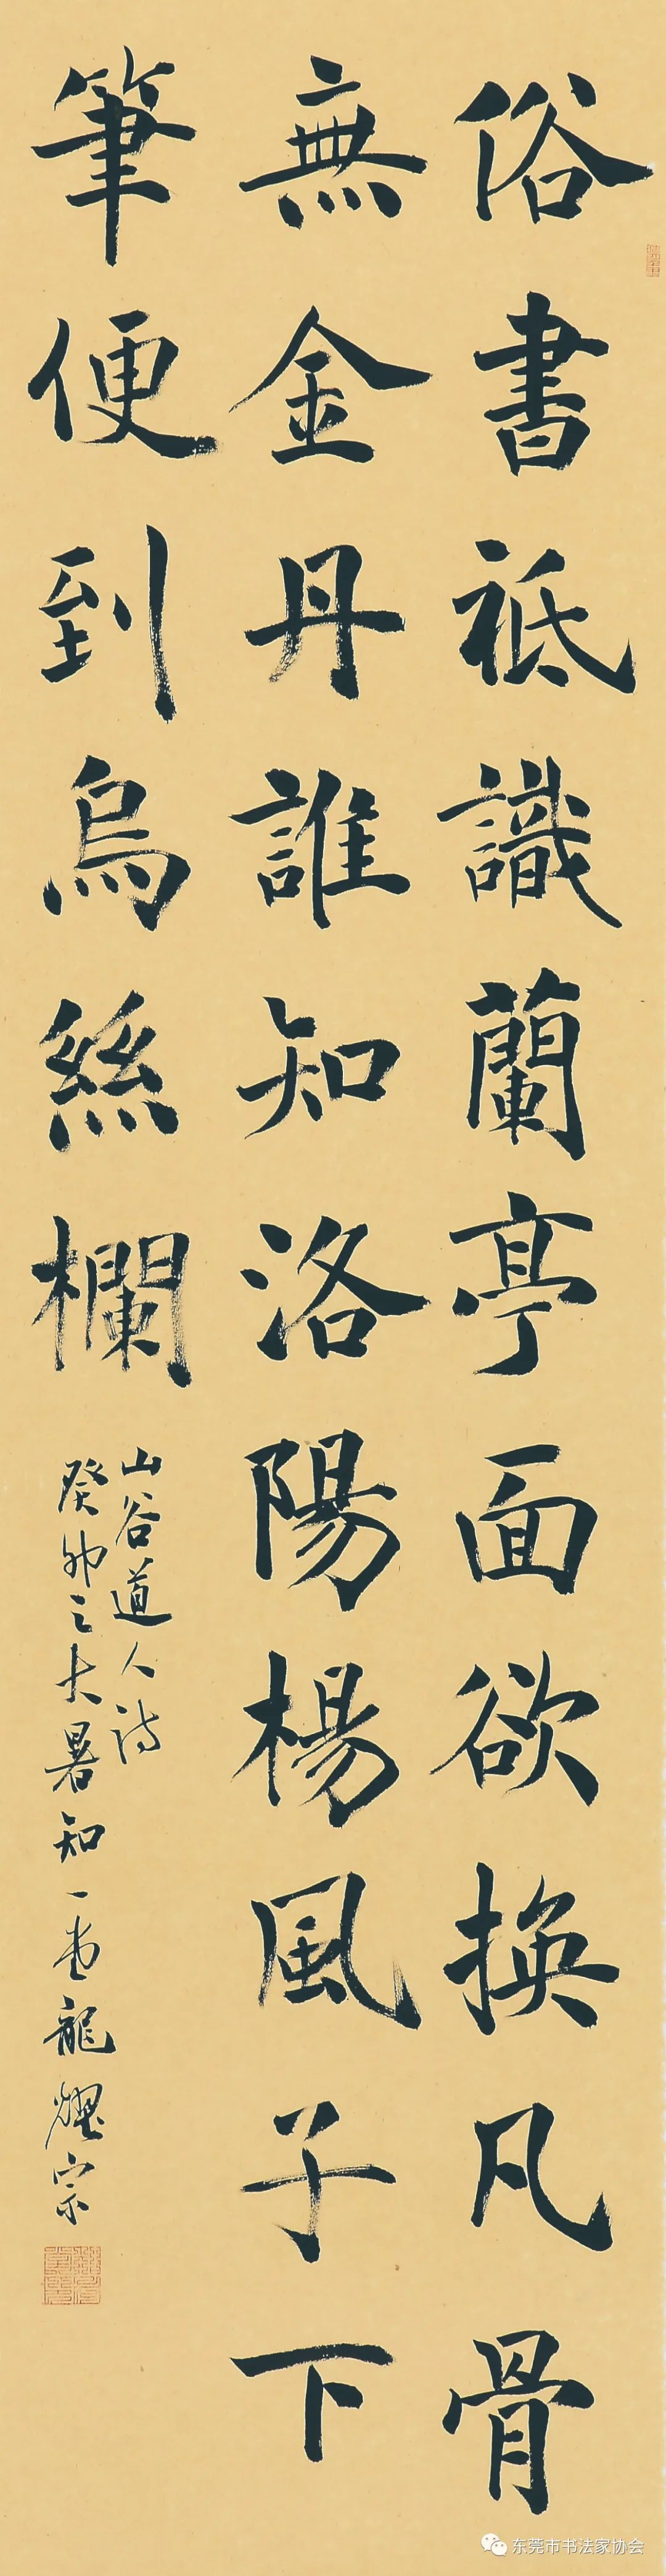 俗書祇識蘭亭面欲換凡骨
無金丹誰知洛陽楊風子下
筆便到烏絲欄
山谷道人詩
癸卯之大暑知一堂龍燿宗
东莞市书法家协会